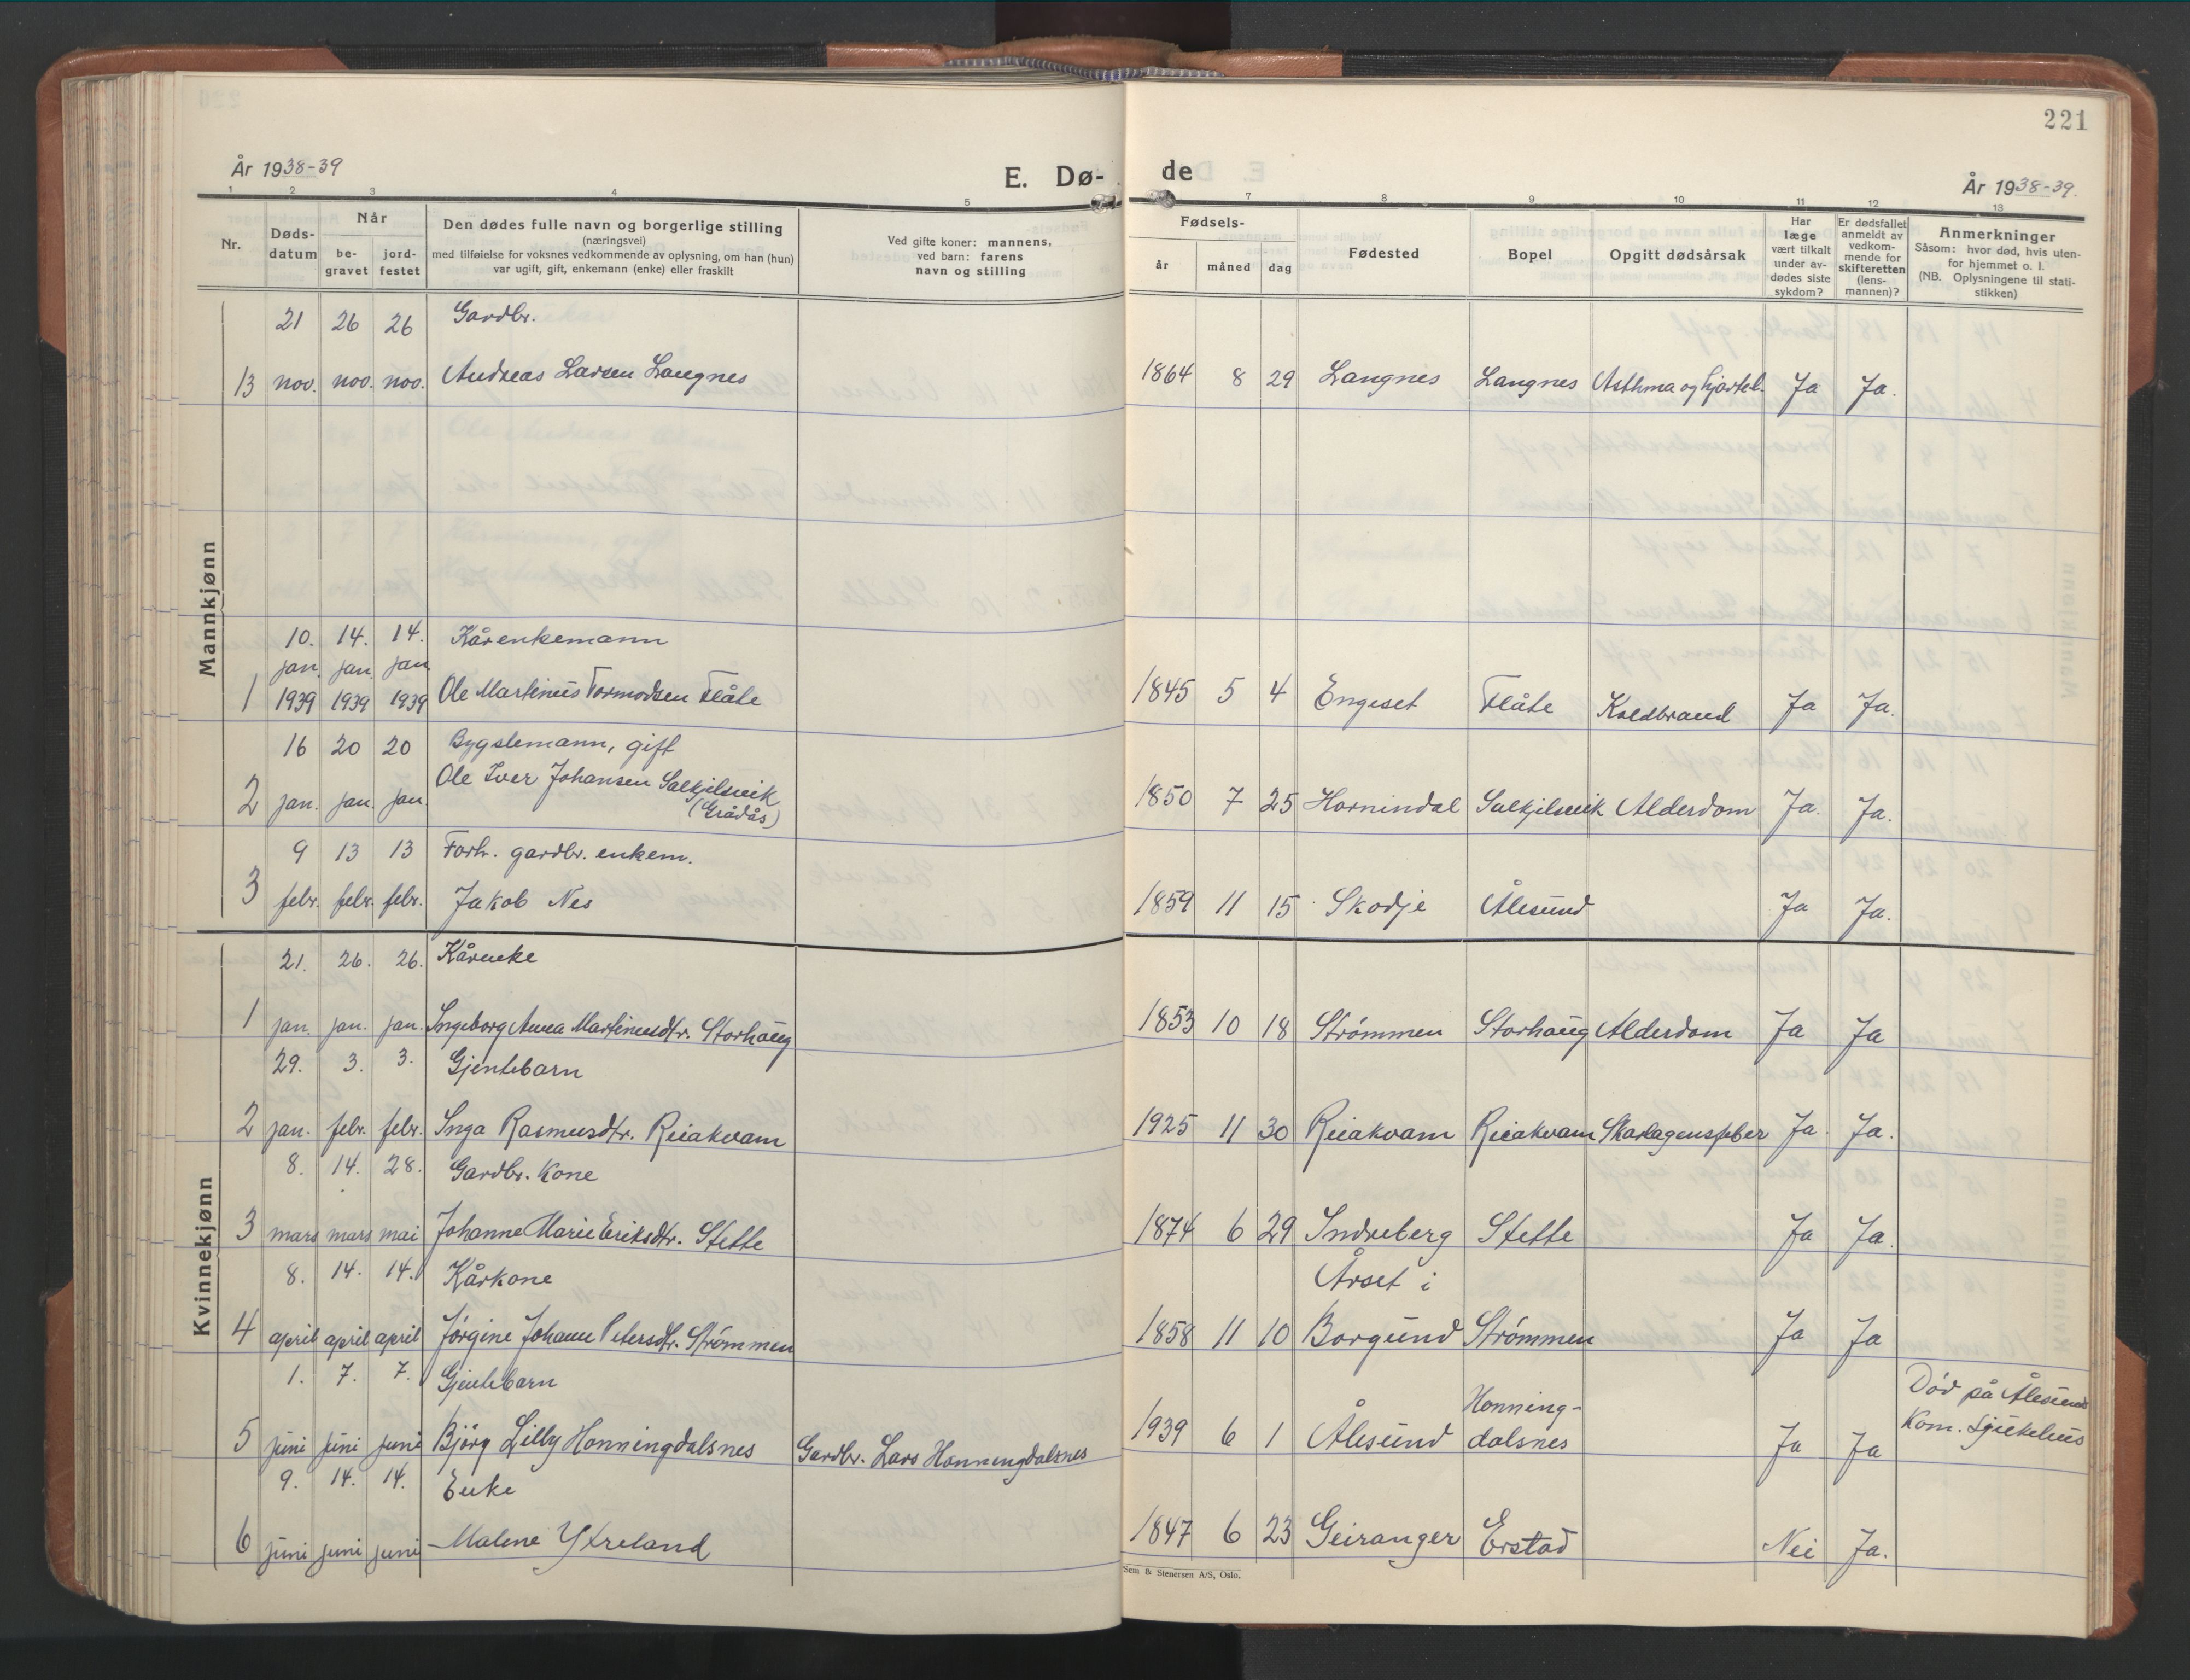 221
År 1938-39
E. Dø-
de
År 1938-39.
1 2 3 4 5
7 8 9 10 11 12 13
Nr.
Døds-
datum
Når
be-
gravet
jord-
festet
Den dødes fulle navn og borgerlige stilling
(næringsvei)
med tilføielse for voksnes vedkommende av oplysning, om han (hun)
var ugift, gift, enkemann (enke) eller fraskilt
Ved gifte koner: mannens,
ved barn: farens
navn og stilling
Fødsels-
år måned dag
Fødested
Bopel
Opgitt dødsårsak
Har
læge
vært tilkalt
under av-
dødes siste
sykdom?
Er dødsfallet
anmeldt av
vedkom-
mende for
skifteretten
(lens-
mannen)?
Anmerkninger
Såsom: hvor død, hvis uten-
for hjemmet o. l.
(NB. Oplysningene til stati-
stikken)
Mannkjønn
21 26 26 Gardbr.
13 nov. nov. nov. Andreas Larsen Langnes 1864 8 29 Langnes Langnes Asthma og hjartel. Ja Ja.
10. 14. 14. Kårenkemann
jan. jan. jan.
1 1939 1939 1939 Ole Martinus Tormodsen Flåte 1845 5 4 Engeset Flåte Koldbrand Ja Ja.
16 20 20 Bygslemann, gift
2 jan. jan. jan. Ole Iver Johansen Solkjilsvik 1850 7 25 Hornindal Solkjilsvik Alderdom Ja. Ja.
(Grådås)
9 13 13 Forh. gardbr. enkem.
3 febr. febr. febr. Jakob Nes 1859 11 15 Skodje Ålesund Ja Ja.
Kvinnekjønn
21. 26. 26. Kårenke
1 jan. jan. jan. Ingeborg Anna Martinusdtr. Storhaug 1853 10 18 Strømmen Storhaug Alderdom Ja Ja
29. 3. 3. Gjentebarn
2 jan. febr. febr. Inga Rasmusdtr. Reiakvam 1925 11 30 Reiakvam Reiakvam Skarlagensfeber Ja. Ja.
8. 14. 28. Gardbr. kone
3 mars mars mai Johanne Marie Eriksdtr. Stette 1874 6 29 Indreberg Stette Ja Ja.
8. 14. 14. Kårkone Årset i
4 april april april Jørgine Johann Petersdtr. Strømmen 1858 11 10 Borgund Strømmen Ja Ja
1. 7. 7. Gjentebarn Honning- Død på Ålesund
5 juni juni juni Bjørg Lilly Honningdalsnes Gardbr. Lars Honningdalsnes 1939 6 1 Ålesund dalsnes Ja Ja Kom. sjukehus
9. 14. 14. Enke
6 juni juni juni Malene Ytreland 1847 6 23 Geiranger Erstad Nei Ja.
Sem & Stenersen A/S, Oslo.